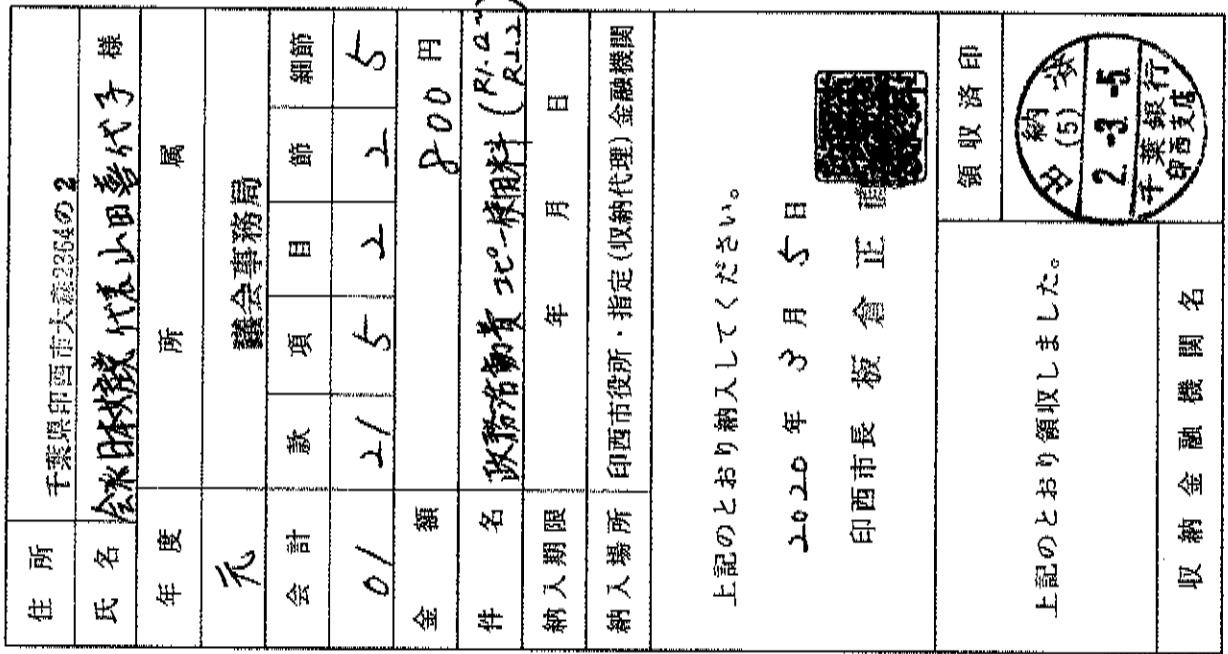 住所 千葉県印西市大森2364の2
氏名 会派日本共産党 代表 山田喜代子 様
年度 所属
元 議会事務局
会計 款 項 目 節 細節
01 21 5 2 2 5
金額 800円
件名 政務活動費 コピー使用料 (R1.2〜 R2.2)
納入期限 年 月 日
納入場所 印西市役所・指定(収納代理)金融機関
上記のとおり納入してください。
2020年3月5日
印西市長 板倉正直
領収済印
上記のとおり領収しました。
収納
(5)
2.-3.-5
千葉銀行
印西支店
収納金融機関名